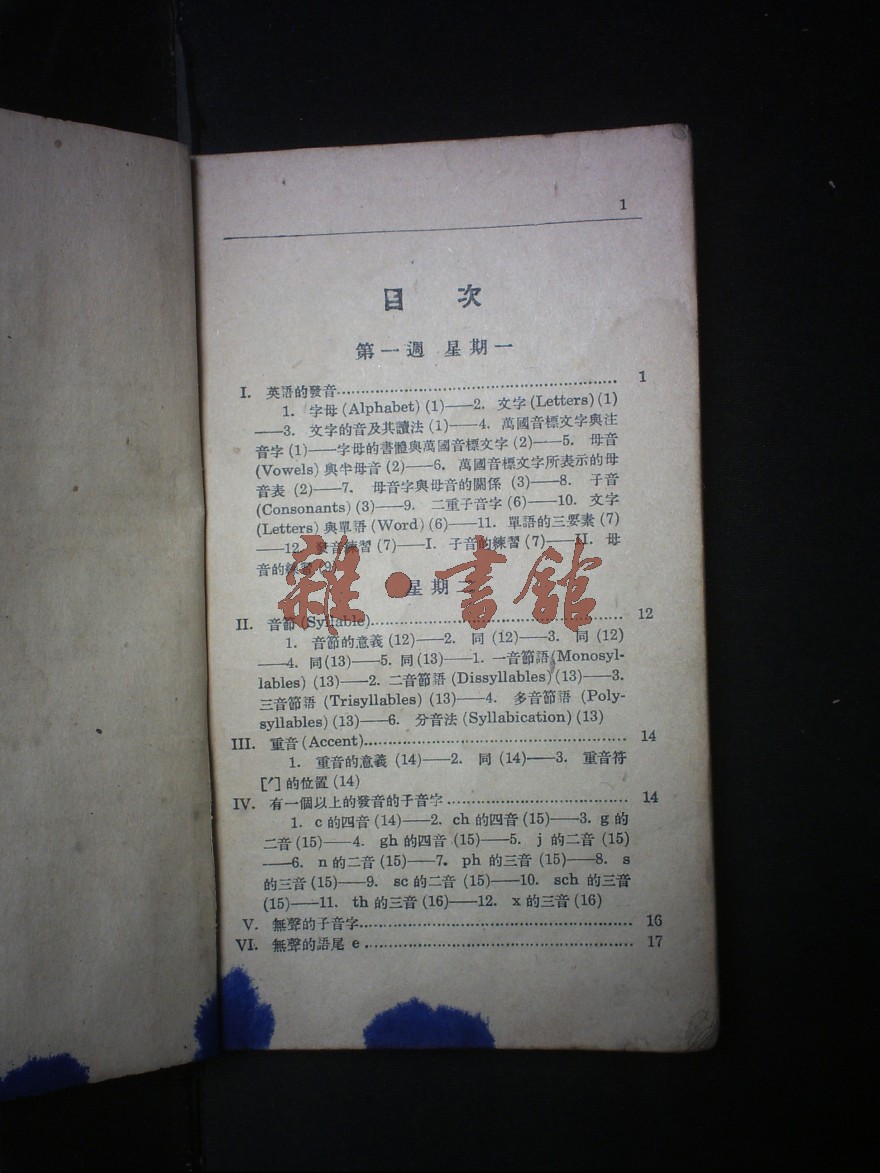 1
目 次
第一週 星期一
I. 英語的發音……………………………………………… 1
1. 字母 (Alphabet) (1)——2. 文字 (Letters) (1)
——3. 文字的音及其讀法 (1)——4. 萬國音標文字與注
音字 (1)——字母的書體與萬國音標文字 (2)——5. 母音
(Vowels) 與半母音 (2)——6. 萬國音標文字所表示的母
音表 (2)——7. 母音字與母音的關係 (3)——8. 子音
(Consonants) (3)——9. 二重子音字 (6)——10. 文字
(Letters) 與單語 (Word) (6)——11. 單語的三要素 (7)
——12. 發音練習 (7)——I. 子音的練習 (7)——II. 母
音的練習 (9)
雜·書館
星期二
II. 音節 (Syllable)……………………………………… 12
1. 音節的意義 (12)——2. 同 (12)——3. 同 (12)
——4. 同 (13)——5. 同 (13)——1. 一音節語 (Monosyl-
lables) (13)——2. 二音節語 (Dissyllables) (13)——3.
三音節語 (Trisyllables) (13)——4. 多音節語 (Poly-
syllables) (13)——6. 分音法 (Syllabication) (13)
III. 重音 (Accent)……………………………………… 14
1. 重音的意義 (14)——2. 同 (14)——3. 重音符
[′] 的位置 (14)
IV. 有一個以上的發音的子音字……………………………… 14
1. c 的四音 (14)——2. ch 的四音 (15)——3. g 的
二音 (15)——4. gh 的四音 (15)——5. j 的二音 (15)
——6. n 的二音 (15)——7. ph 的三音 (15)——8. s
的三音 (15)——9. sc 的二音 (15)——10. sch 的三音
(15)——11. th 的三音 (16)——12. x 的三音 (16)
V. 無聲的子音字……………………………………………… 16
VI. 無聲的語尾 e……………………………………………… 17